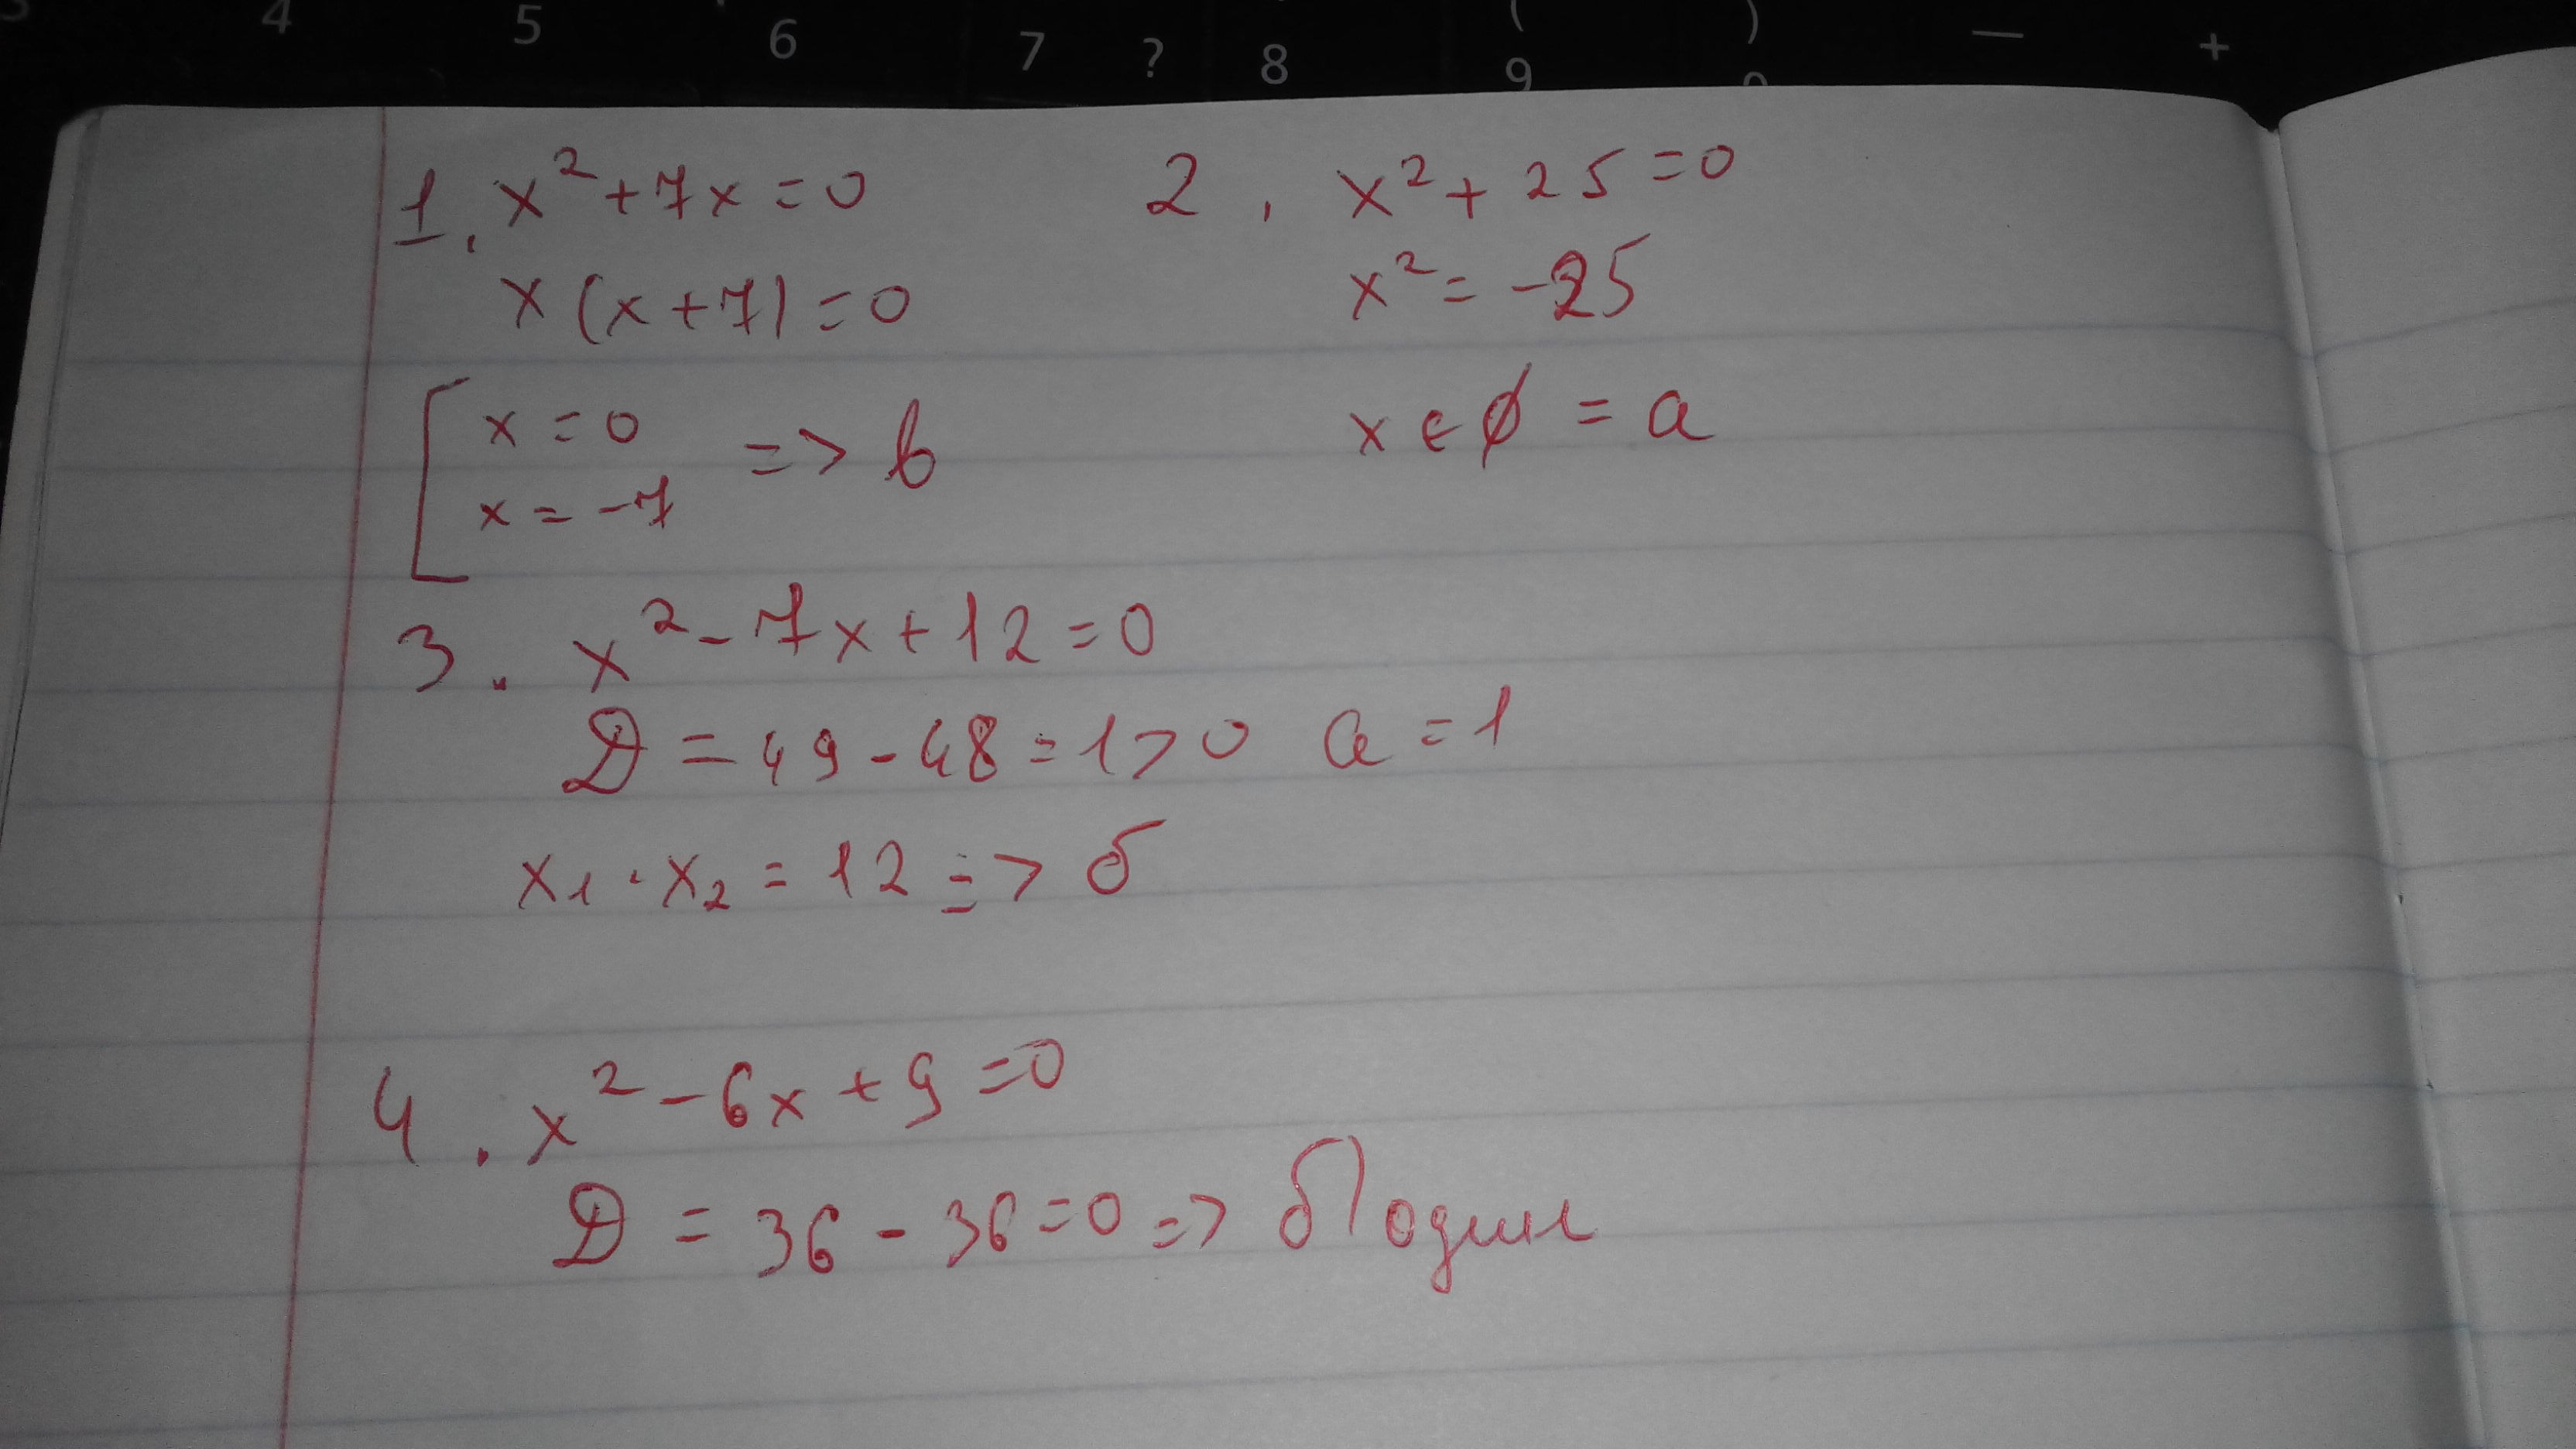 4 5 6 7 ? 8 ( 9 ) — +
1. x² + 7x = 0
x (x + 7) = 0
[ x = 0
x = -7 => в
2. x² + 25 = 0
x² = -25
x ∈ ∅ = а
3. x² - 7x + 12 = 0
D = 49 - 48 = 1 > 0 a = 1
x₁ · x₂ = 12 => б
4. x² - 6x + 9 = 0
D = 36 - 36 = 0 => б) один